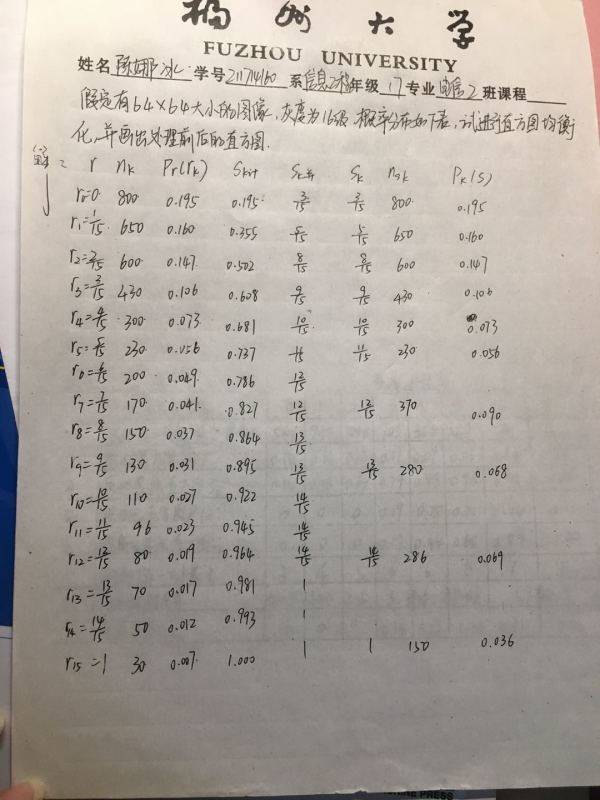 福州大学
FUZHOU UNIVERSITY
姓名 陈娜冰 学号 211714160 系 信息工程 年级 17 专业 电信2 班课程
假定有64×64大小的图像,灰度为16级 概率分布如下表,试进行直方图均衡
化,并画出处理前后的直方图.
(一)
解: r nk Pr(rk) Sk计 Sk并 Sk nsk Pk(s)
r0=0 800 0.195 0.195 3/15 3/15 800 0.195
r1=1/15 650 0.160 0.355 5/15 5/15 650 0.160
r2=2/15 600 0.147 0.502 8/15 8/15 600 0.147
r3=3/15 430 0.106 0.608 9/15 9/15 430 0.106
r4=4/15 300 0.073 0.681 10/15 10/15 300 0.073
r5=5/15 230 0.056 0.737 11/15 11/15 230 0.056
r6=6/15 200 0.049 0.786 12/15
r7=7/15 170 0.041 0.827 12/15 12/15 370 0.090
r8=8/15 150 0.037 0.864 13/15
r9=9/15 130 0.031 0.895 13/15 13/15 280 0.068
r10=10/15 110 0.027 0.922 14/15
r11=11/15 96 0.023 0.945 14/15
r12=12/15 80 0.019 0.964 14/15 14/15 286 0.069
r13=13/15 70 0.017 0.981 1
r14=14/15 50 0.012 0.993 1
r15=1 30 0.007 1.000 1 1 150 0.036